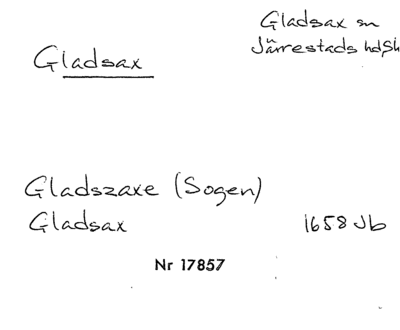 Gladsax sn
Järrestads hd, Sk
Gladsax
Gladszaxe (Sogen)
Gladsax 1658 Jb
Nr 17857